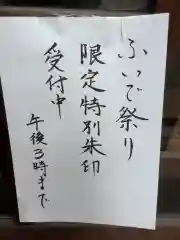 ふいご祭り
限定特別朱印
受付中
午後3時まで